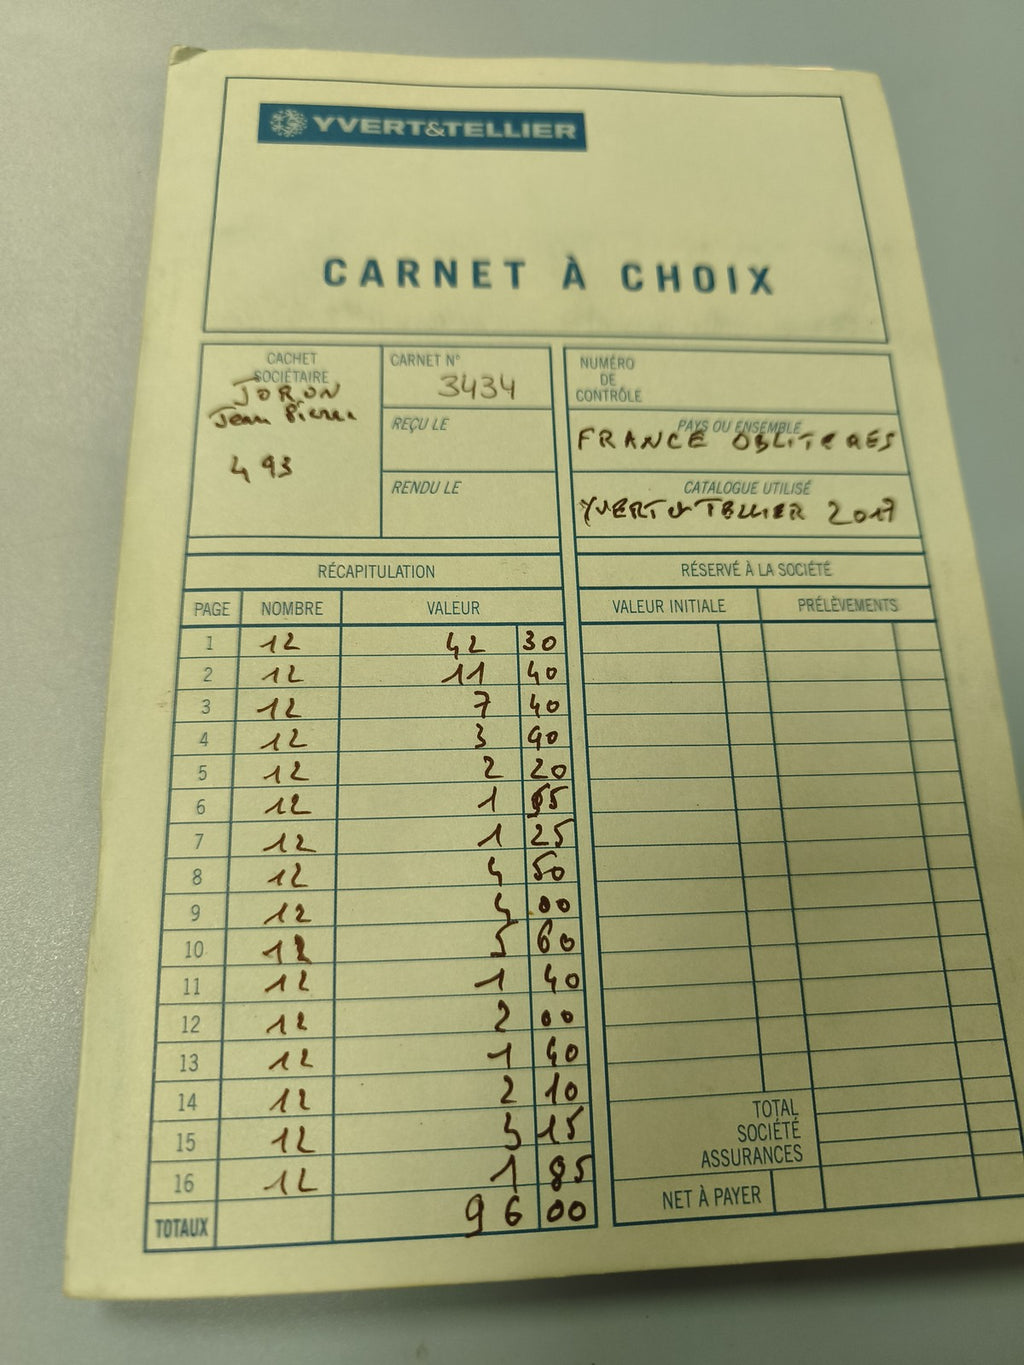 YVERT&TELLIER
CARNET À CHOIX
CACHET SOCIÉTAIRE
JORON
Jean Pierre
493
CARNET N°
3434
REÇU LE
RENDU LE
NUMÉRO DE CONTRÔLE
PAYS OU ENSEMBLE
FRANCE OBLITERES
CATALOGUE UTILISÉ
YVERT & TELLIER 2017
RÉCAPITULATION
PAGE NOMBRE VALEUR
1 12 42 30
2 12 11 40
3 12 7 40
4 12 3 90
5 12 2 20
6 12 1 55
7 12 1 25
8 12 4 50
9 12 4 00
10 12 5 60
11 12 1 40
12 12 2 00
13 12 1 40
14 12 2 10
15 12 3 15
16 12 1 85
TOTAUX 96 00
RÉSERVÉ À LA SOCIÉTÉ
VALEUR INITIALE PRÉLÈVEMENTS
TOTAL
SOCIÉTÉ
ASSURANCES
NET À PAYER